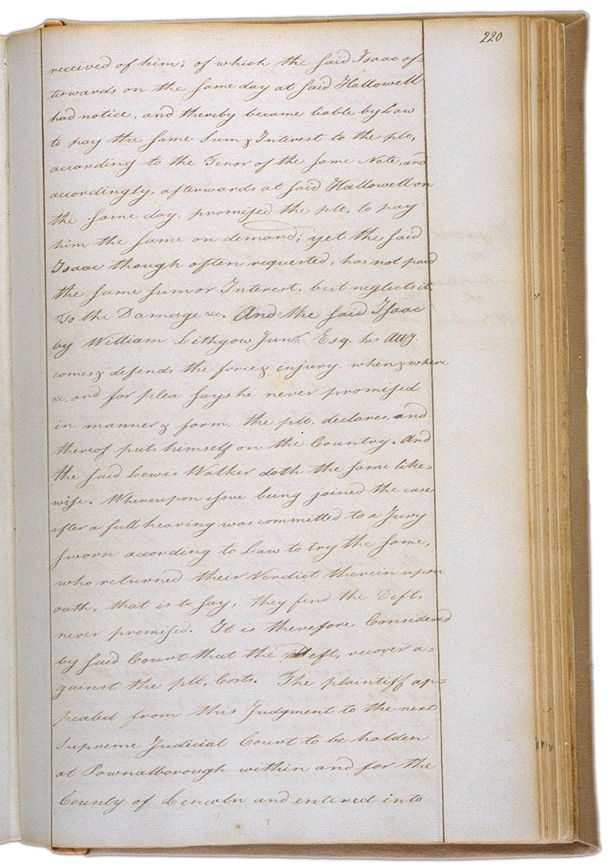 220
received of him; of which the said Isaac af-
terwards on the same day at said Hallowell
had notice, and thereby became liable by Law
to pay the same Sum & Interest to the plt,
according to the Tenor of the same Note, and
accordingly, afterwards at said Hallowell on
the same day, promised the plt, to pay
him the same on demand; yet the said
Isaac though often requested, has not paid
the same sum or Interest, but neglects it,
To the Damage &c. And the said Isaac
by William Lithgow Junr. Esq. his Atty.
comes & defends the force & injury when & where
&c. and for plea says he never promised
in manner & form, the plt, declares, and
thereof puts himself on the Country. And
the said Lewis Walker doth the same like=
wise. Whereupon issue being joined the case
after a full hearing was committed to a Jury
sworn according to Law to try the same,
who returned their Verdict therein upon
oath, that is to say, they find the Deft,
never promised. It is therefore Considered
by said Court that the Deft, recover a=
gainst the plt, Costs. The plaintiff ap=
pealed from this Judgment to the next
Supreme Judicial Court to be holden
at Pownalborough within and for the
County of Lincoln and entered into